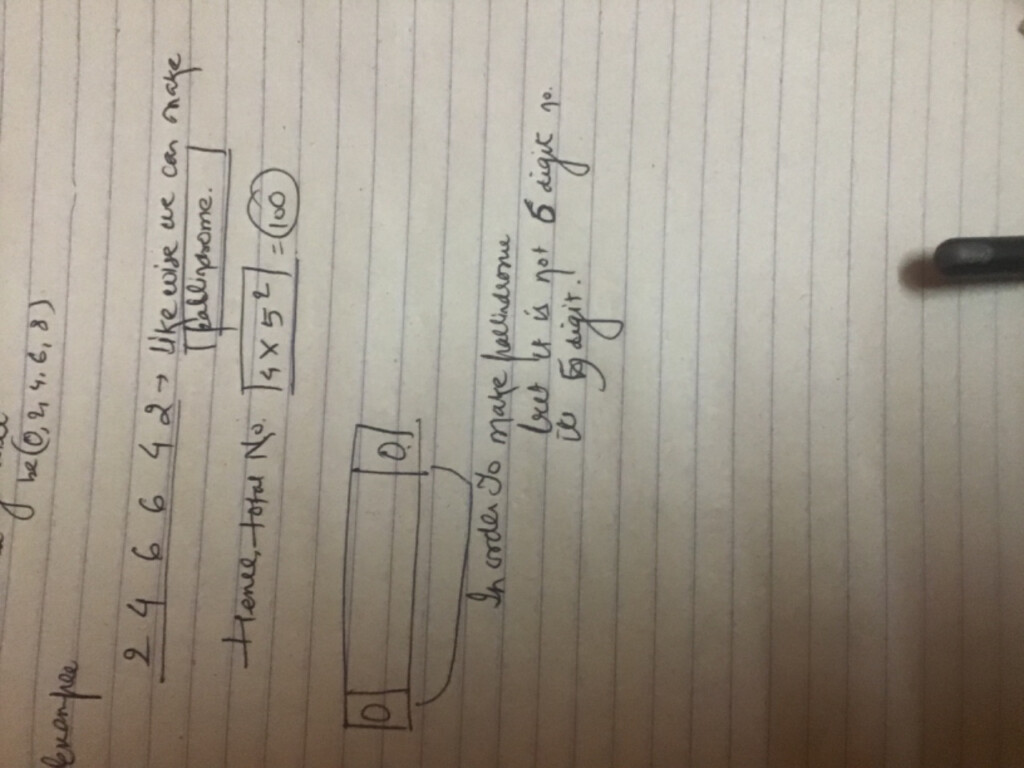 be (0, 2, 4, 6, 8)
Example
2 4 6 6 4 2 → likewise we can make
pallindrome.
Hence, total No. 4 x 5² = 100
0 0
In order To make pallindrome
but it is not 6 digit no.
its 5 digit.